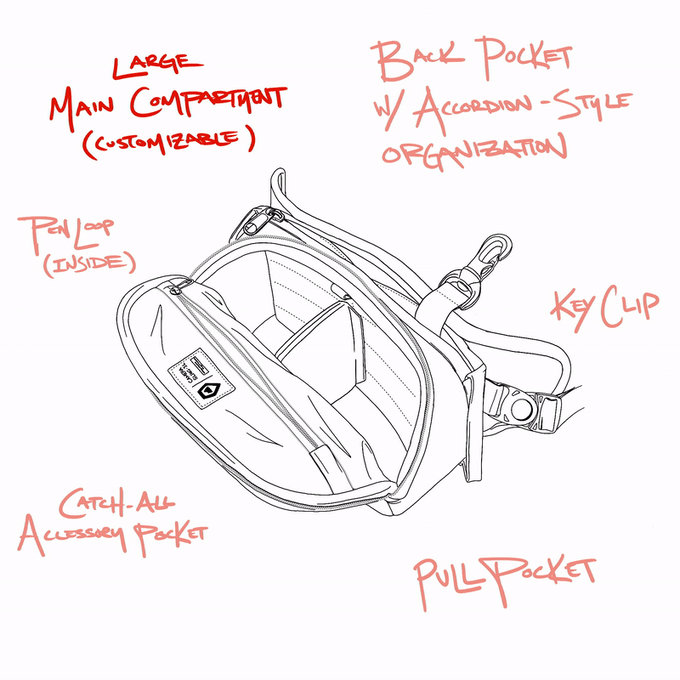 LARGE
MAIN COMPARTMENT
(CUSTOMIZABLE)
BACK POCKET
W/ ACCORDION-STYLE
ORGANIZATION
PEN LOOP
(INSIDE)
KEY CLIP
CATCH-ALL
ACCESSORY POCKET
PULL POCKET